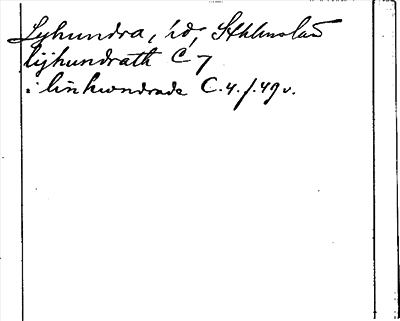 Lyhundra, hd, Sthlmslän
lijhundrath C 7
i linhwndrade C. 4. f. 49 v.